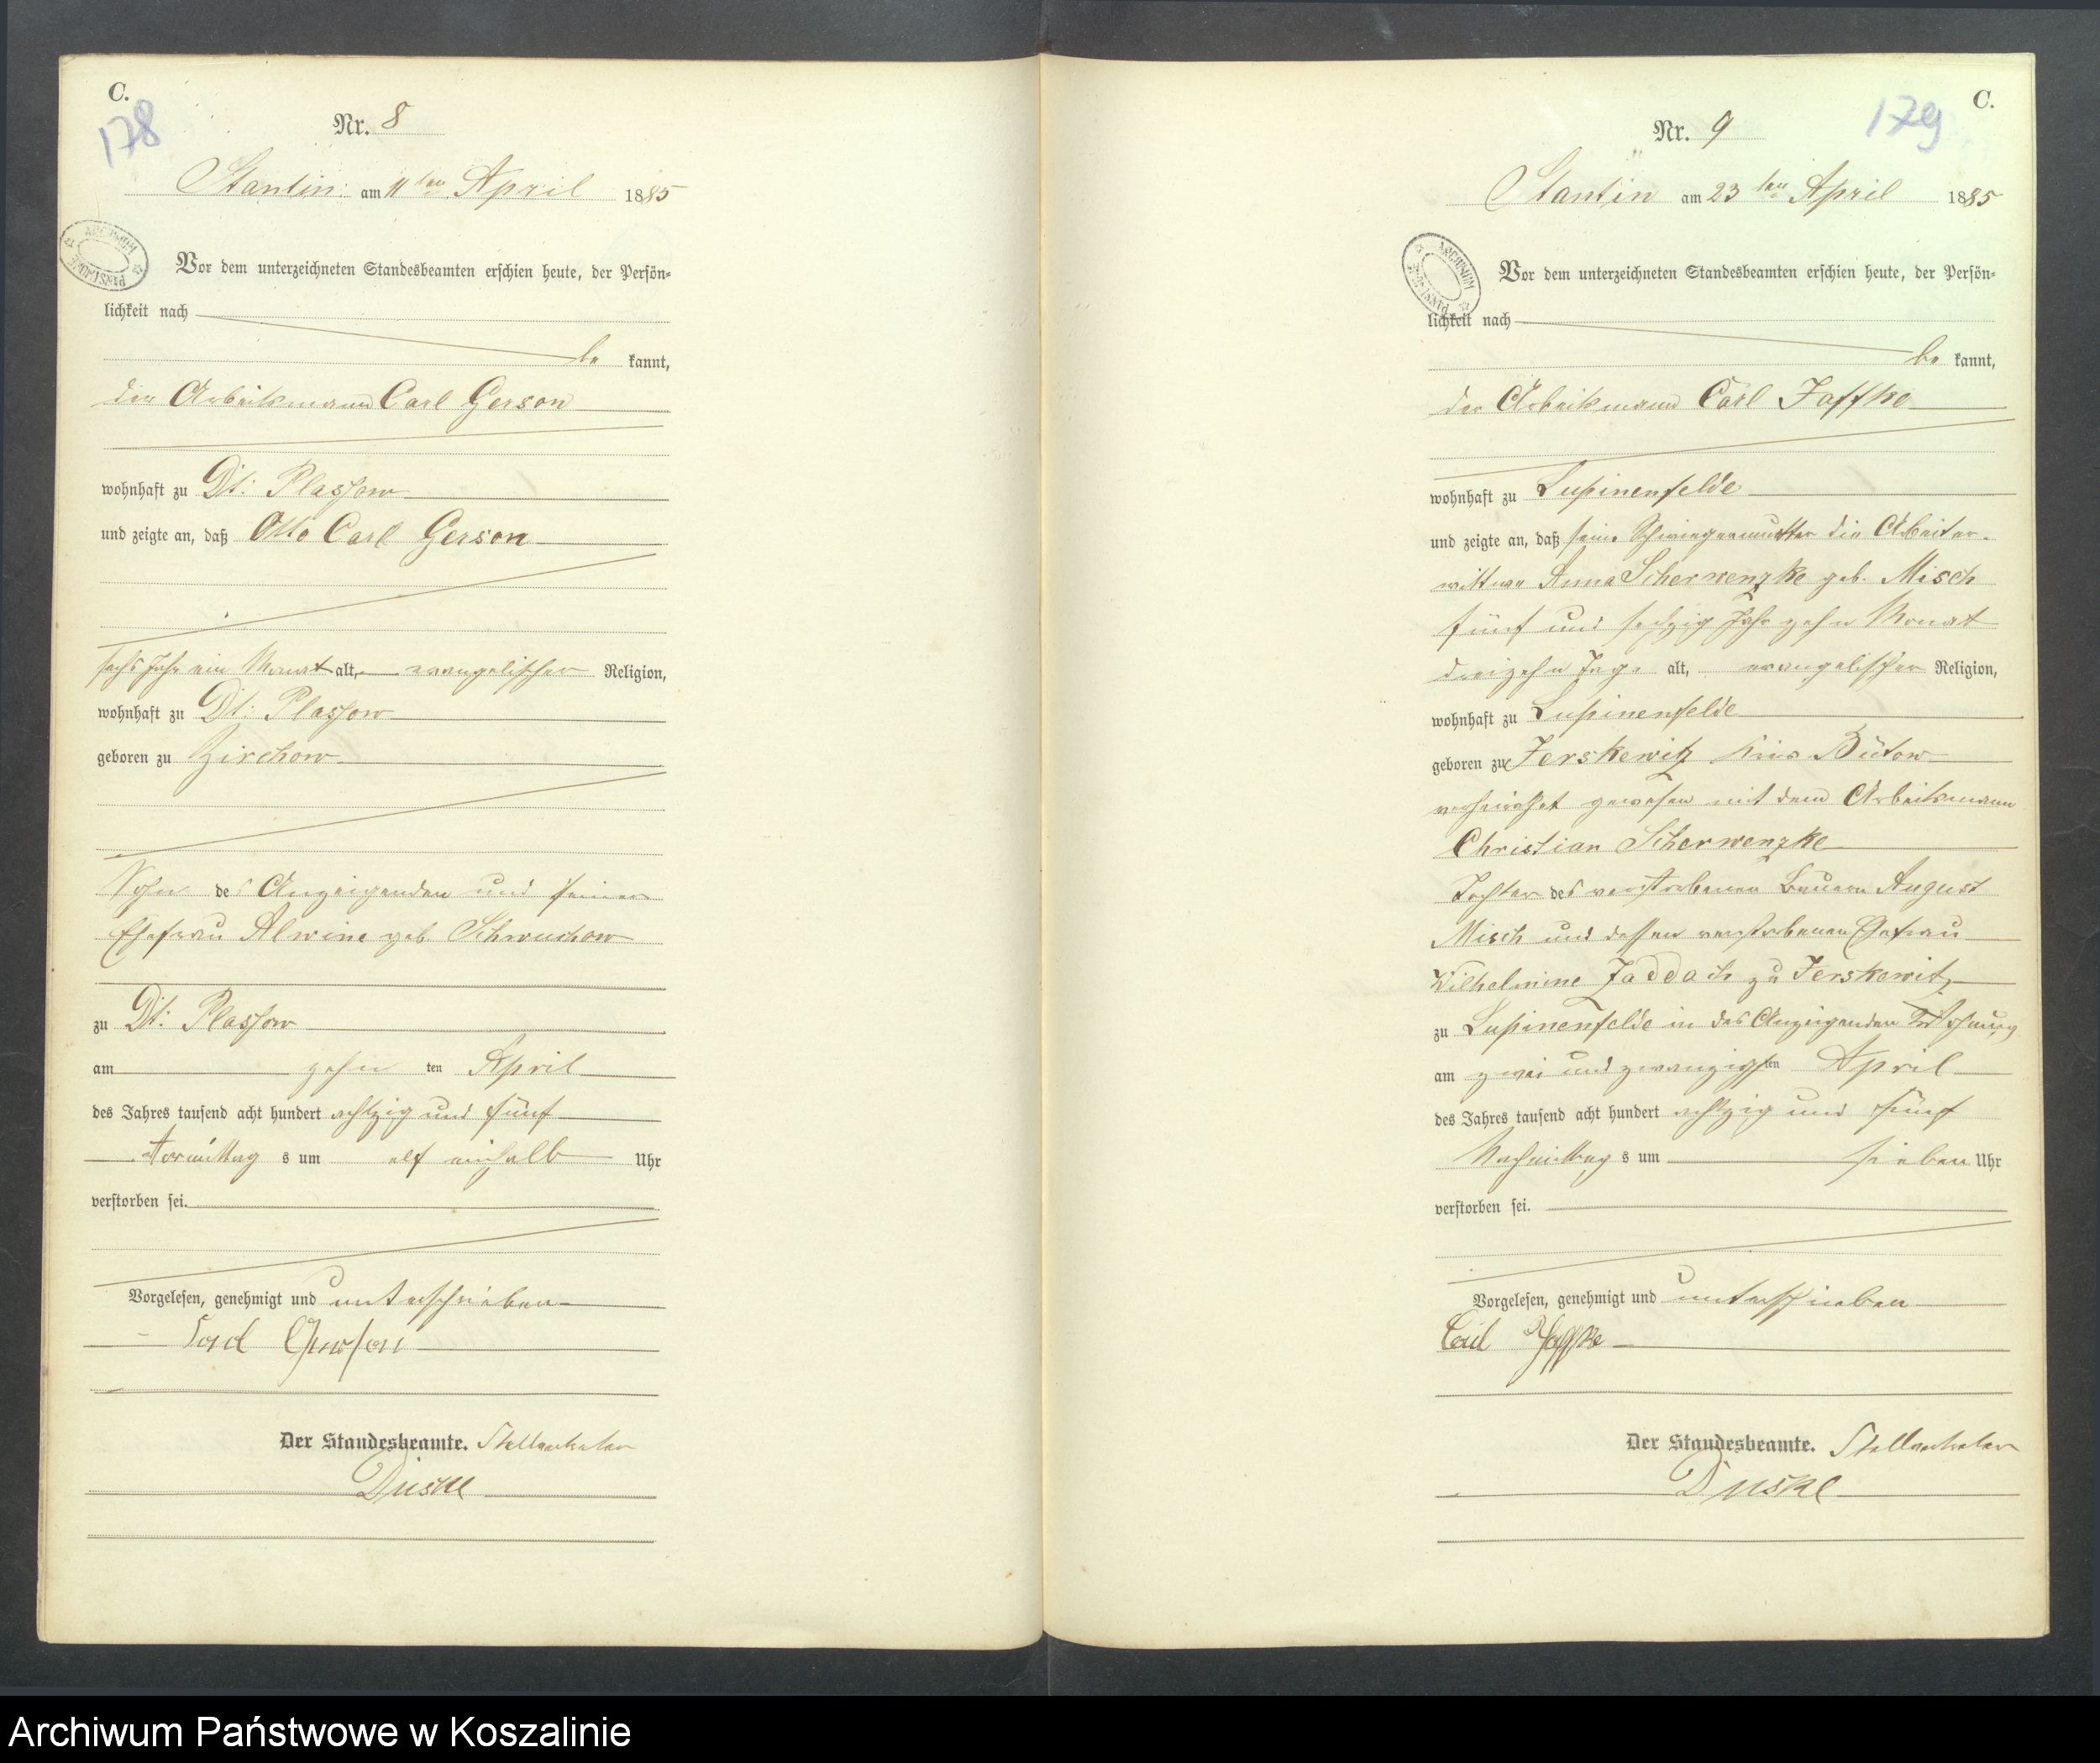 C.
178
Nr. 8
Stantin am 11ten April 1885
Vor dem unterzeichneten Standesbeamten erschien heute, der Persön-
lichkeit nach
be kannt,
der Arbeitsmann Carl Gerson
wohnhaft zu Dt: Plassow
und zeigte an, daß Otto Carl Gerson
sechs Jahr ein Monat alt, evangelischer Religion,
wohnhaft zu Dt: Plassow
geboren zu Zirchow
Sohn des Anzeigenden und seiner
Ehefrau Alwine geb. Schwuchow
zu Dt: Plassow
am zehn ten April
des Jahres tausend acht hundert achtzig und fünf
Vormittag s um elf einhalb Uhr
verstorben sei.
Vorgelesen, genehmigt und unterschrieben
Carl Gerson
Der Standesbeamte. Stellvertreter
Duske
C.
179
Nr. 9
Stantin am 23ten April 1885
Vor dem unterzeichneten Standesbeamten erschien heute, der Persön-
lichkeit nach
be kannt,
der Arbeitsmann Carl Jaffke
wohnhaft zu Lupinenfelde
und zeigte an, daß seine Schwiegermutter die Arbeiter-
wittwe Anna Scherwenzke geb. Misch
fünf und sechzig Jahr zehn Monat
dreizehn Tage alt, evangelischer Religion,
wohnhaft zu Lupinenfelde
geboren zu Jerskewitz Kreis Bütow
verheirathet gewesen mit dem Arbeitsmann
Christian Scherwenzke
Tochter des verstorbenen Bauern August
Misch und dessen verstorbenen Ehefrau
Wilhelmine Jaddach zu Jerskewitz
zu Lupinenfelde in des Anzeigenden Wohnung
am zwei und zwanzigsten April
des Jahres tausend acht hundert achtzig und fünf
Nachmittag s um sieben Uhr
verstorben sei.
Vorgelesen, genehmigt und unterschrieben
Carl Jaffke
Der Standesbeamte. Stellvertreter
Duske
Archiwum Państwowe w Koszalinie